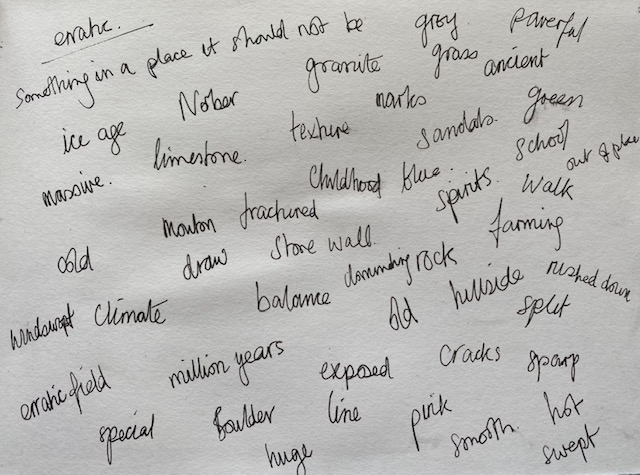 erratic.
Something in a place it should not be grey. powerful
granite grass ancient
ice age Norber marks green
massive. limestone. texture sandals. school
childhood blue. out of place
cold mouton fractured spirits. walk
draw stone wall. farming
windswept climate balance dominating rock
old hillside rushed down
erratic field million years split
exposed cracks
special Boulder line pink smooth. hot
huge swept